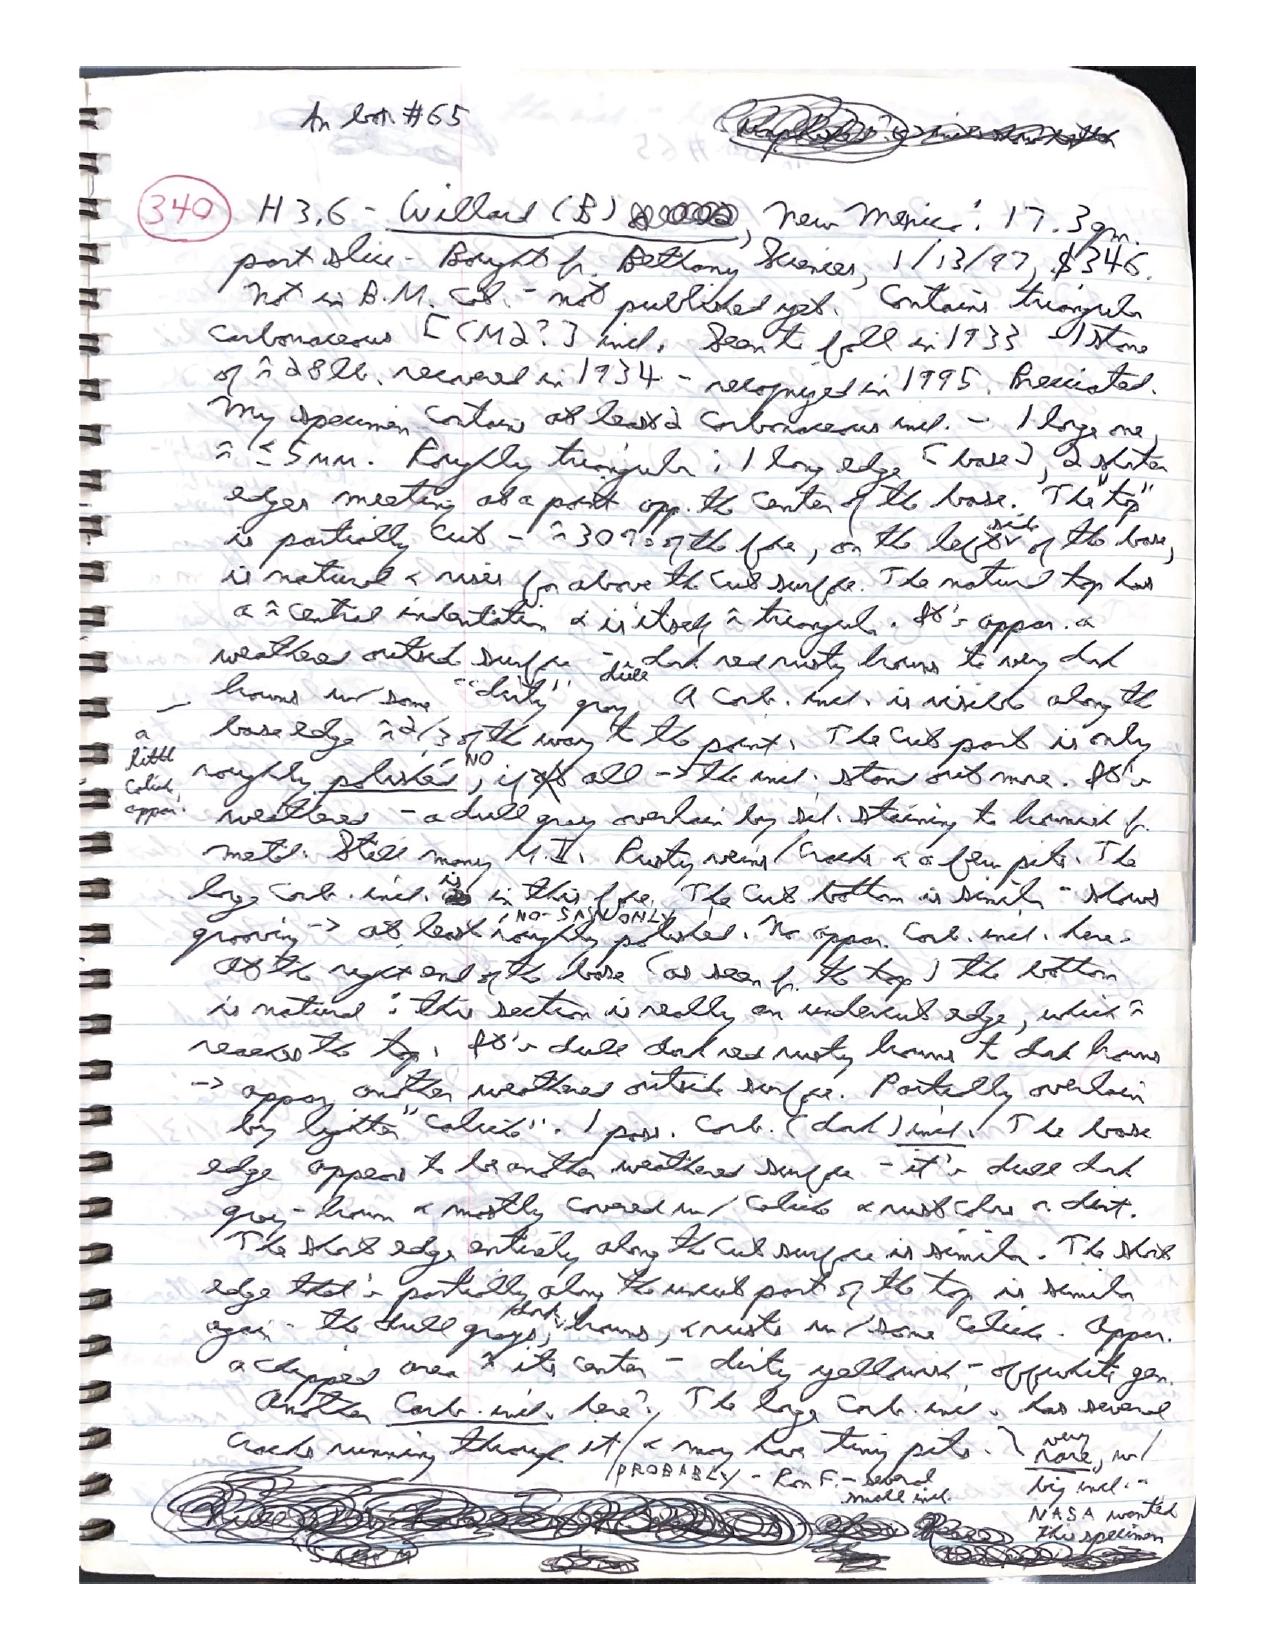 In box #65
340 H3.6 - Willard (B), New Mexico: 17.3gm.
part slice - Bought fr. Bethany Sciences, 1/13/97, $346.
Not in B.M. Cat. - not published yet. Contains triangular
carbonaceous [CM2?] incl. Seen to fall in 1933 - 1 stone
of ~28lb. recovered in 1934 - recognized in 1995. Brecciated.
My specimen contains at least 2 carbonaceous incl. - 1 large one,
~ ≤5mm. Roughly triangular: 1 long edge [base], 2 shorter
edges meeting at a point opp. the center of the base. The "top"
is partially cut - ~30% of the face, on the left side of the base,
is natural & rises far above the cut surface. The natural top has
a ~central indentation & is itself ~triangular. It's appar. a
weathered outside surface - dark red rusty browns to very dark
browns w/ some "dirty" dull gray. A carb. incl. is visible along the
base edge ~2/3 of the way to the point. The cut part is only
a little calich. appar.
roughly polished, NO if at all -> the incl. stand out more. It's
weathered - a dull gray overlain by sil. staining to brownish fr.
metal. Still many M.I. Rusty veins/cracks & a few pits. The
large carb. incl. is in this face. The cut bottom is similar - shows
grooving -> at least roughly polished. NO-SAW ONLY No appar. carb. incl. here.
At the right end of the base (as seen fr. the top) the bottom
is natural: this section is really an undercut edge, which ~
reaches the top. It's dull dark red rusty browns to dark browns
-> appar. another weathered outside surface. Partially overlain
by lighter "calich". 1 poss. carb. (dark) incl. The base
edge appears to be another weathered surface - it's dull dark
gray-brown & mostly covered w/ calich & rust colors & dirt.
The short edge entirely along the cut surface is similar. The short
edge that's partially along the uncut part of the top is similar
again - the dull grays, dark browns, & rusts w/ some calich. Appar.
a chipped area ~ its center - dirty yellowish-offwhite gen.
Another carb. incl. here? The large carb. incl. has several
cracks running through it / & may have tiny pits.
PROBABLY - Ron F. - several small incl.
very rare, w/
big incl. -
NASA wanted
this specimen